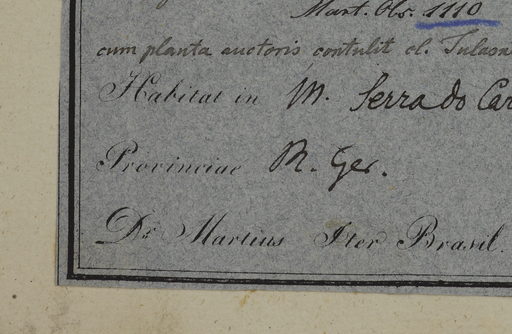 Mart. Obs. 1110
cum planta auctoris contulit cl. Tulasn
Habitat in M. Serra do Car
Provinciae M. Ger.
Dr. Martius Iter Brasil.